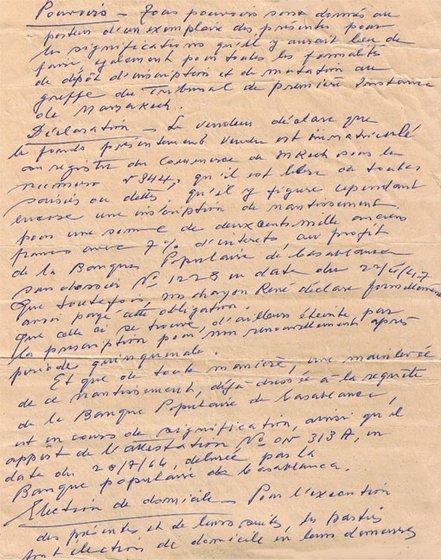 Pouvoirs — Tous pouvoirs sont donnés au
porteur d'un exemplaire des présentes pour
les significations qu'il y aurait lieu de
faire, également pour toutes les formalités
de dépôt d'inscription et de mutation au
greffe du Tribunal de première Instance
de Marrakech.
Déclaration — Le vendeur déclare que
le fonds présentement vendu est immatriculé
au registre du Commerce de MKech sous le
numéro 844, qu'il est libre de toutes
saisies ou dettes, qu'il y figure cependant
encore une inscription de nantissement
pour une somme de deux cent mille anciens
francs avec 7% d'intérêts, au profit
de la Banque Populaire de Casablanca
san dossier No 1228 en date du 47
que toutefois, René déclare formellement
avoir payé cette obligation
que celle ci se trouve, d'ailleurs éteinte par
la prescription pour non renouvellement après
période quinquenale.
Et que de toute manière, une mainlevée
de ce nantissement, déjà dressée à la requête
de la Banque Populaire de Casablanca,
est en cours de signification, ainsi qu'il
appert de l'attestation No 313 A, en
date du 28/7/64, délivrée par la
Banque populaire de Casablanca.
Election de domicile — Pour l'exécution
des présentes et de leurs suites, les parties
font élection de domicile en leurs demeures